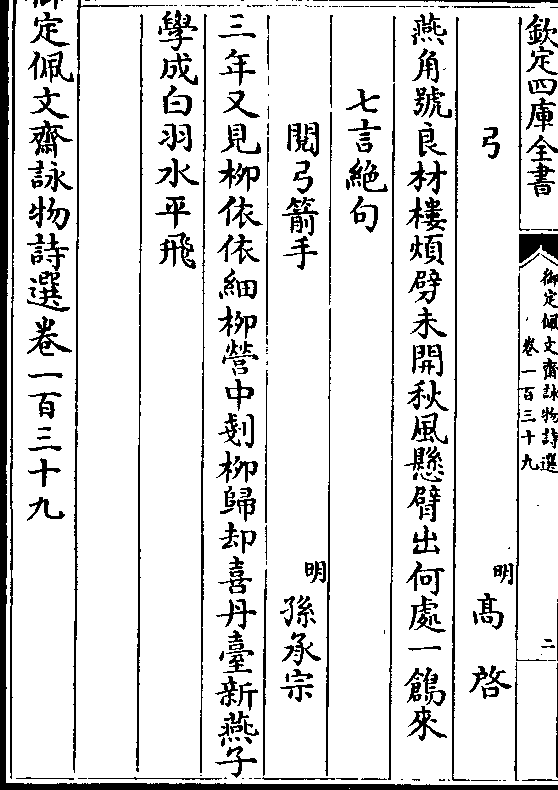 欽定四庫全書
御定佩文齋詠物詩選
卷一百三十九
二
弓
明
高啓
燕角號良材樓煩劈未開秋風懸臂出何處一鶬來
七言絶句
閱弓箭手
明
孫承宗
三年又見柳依依細柳營中剗柳歸却喜丹臺新燕子
學成白羽水平飛
御定佩文齋詠物詩選卷一百三十九